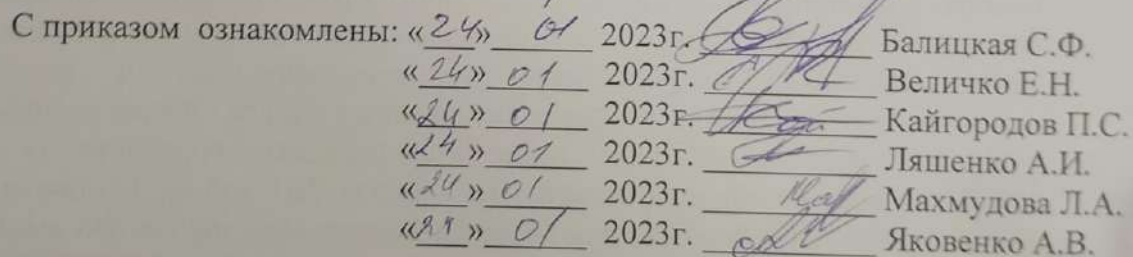 С приказом ознакомлены: «24» 01 2023г. Балицкая С.Ф.
«24» 01 2023г. Величко Е.Н.
«24» 01 2023г. Кайгородов П.С.
«24» 01 2023г. Ляшенко А.И.
«24» 01 2023г. Махмудова Л.А.
«24» 01 2023г. Яковенко А.В.